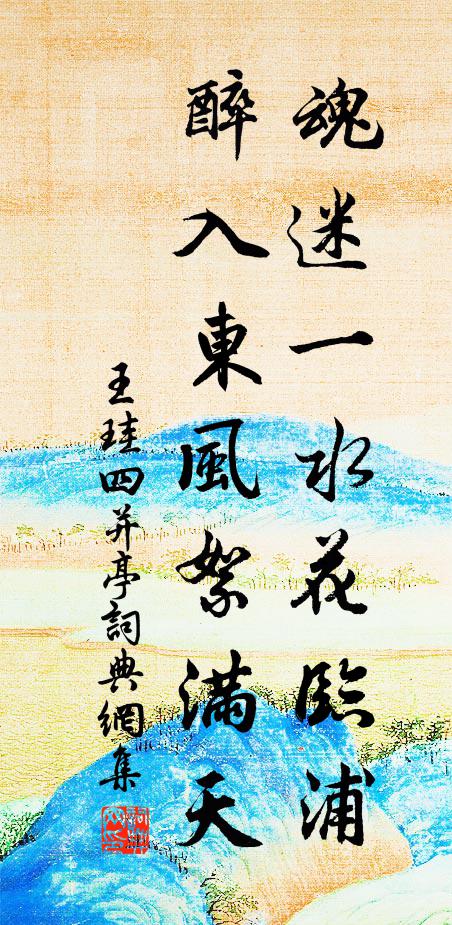 魂迷一水花臨浦
醉入東風絮滿天
王珪四并亭詞典網集